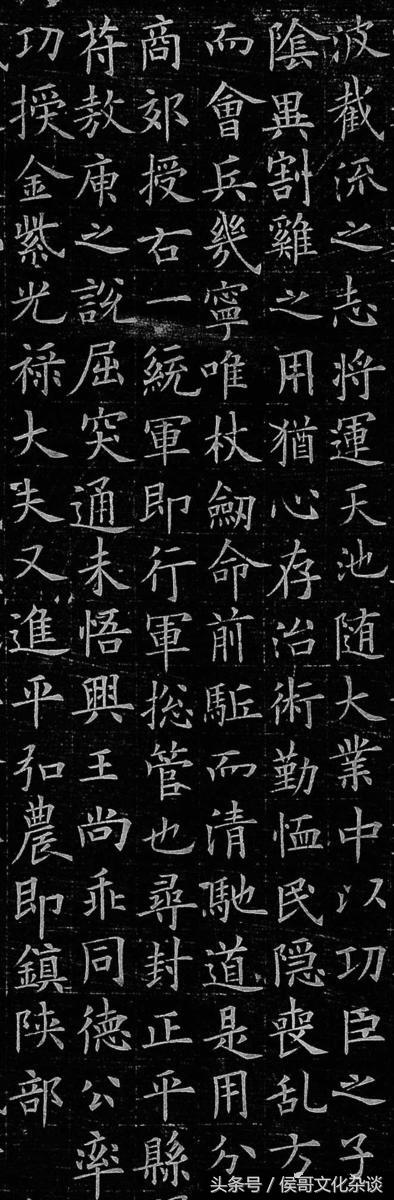 波截流之志将運天池随大業中以功臣之子
陰異割雞之用猶心存治術勤恤民隐喪乱方
而會兵幾寧唯杖劒命前駈而清馳道是用分
商郊授右一統軍即行軍捴管也尋封正平縣
苻敖庾之說屈突通未悟興王尚乖同德公率
功授金紫光禄大夫又進平弘農即鎮陕部
头条号／侯哥文化杂谈